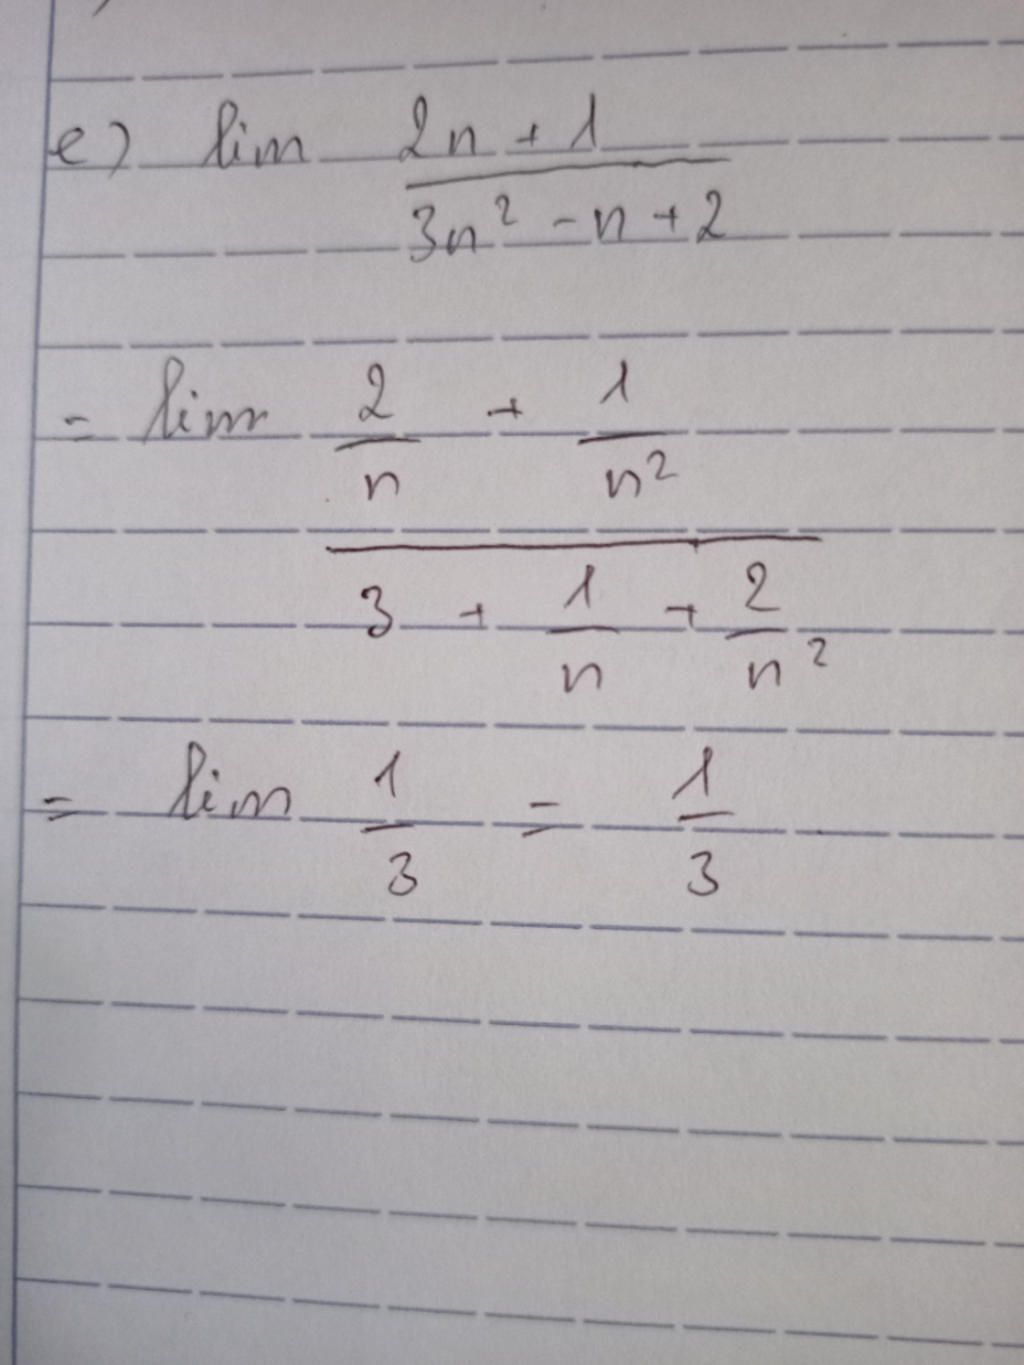 e) lim (2n + 1)/(3n² - n + 2)
= lim (2/n + 1/n²)/(3 + 1/n + 2/n²)
= lim 1/3 = 1/3